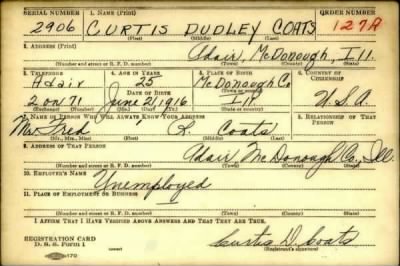 SERIAL NUMBER 1. NAME (Print) ORDER NUMBER
2906 CURTIS DUDLEY COATS 127A
(First) (Middle) (Last)
2. ADDRESS (Print)
Adair, McDonough, Ill.
(Number and street or R. F. D. number) (Town) (County) (State)
3. TELEPHONE 4. AGE IN YEARS 5. PLACE OF BIRTH 6. COUNTRY OF CITIZENSHIP
Adair 25 McDonough Co
DATE OF BIRTH (Town or county)
2 on 71 June 21 1916 Ill U.S.A.
(Exchange) (Number) (Mo.) (Day) (Yr.) (State or country)
7. NAME OF PERSON WHO WILL ALWAYS KNOW YOUR ADDRESS 8. RELATIONSHIP OF THAT PERSON
Mr. Fred R. Coats
(Mr., Mrs., Miss) (First) (Middle) (Last)
9. ADDRESS OF THAT PERSON
Adair McDonough Co., Ill.
(Number and street or R. F. D. number) (Town) (County) (State)
10. EMPLOYER'S NAME
Unemployed
11. PLACE OF EMPLOYMENT OR BUSINESS
(Number and street or R. F. D. number) (Town) (County) (State)
I AFFIRM THAT I HAVE VERIFIED ABOVE ANSWERS AND THAT THEY ARE TRUE.
REGISTRATION CARD
D. S. S. Form 1 Curtis D. Coats
(Registrant's signature)